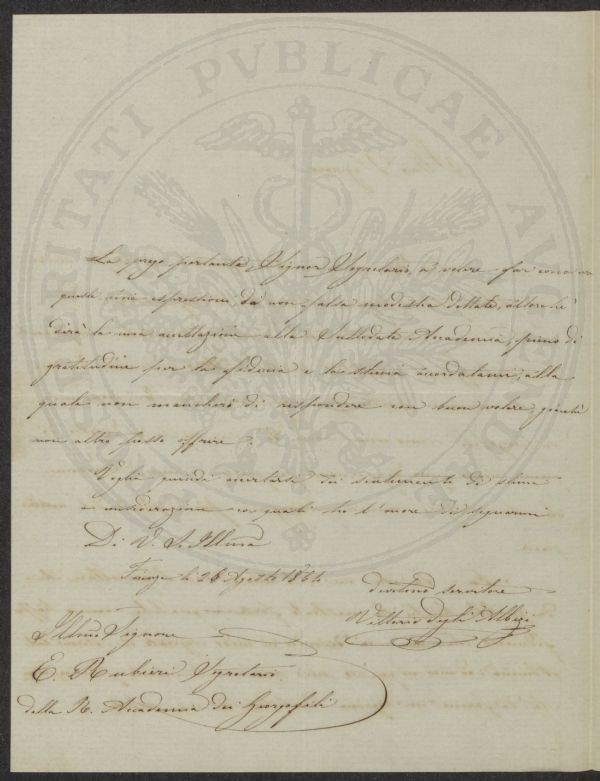 PROSPERITATI PVBLICAE AVGENDAE
La prego pertanto, Signor Segretario, a volere far conoscere
queste mie espressioni, da non falsa modestia dettate, allorchè
dirà la mia accettazione alla sullodata Accademia, pieno di
gratitudine per la fiducia e la stima accordatami, alla
quale non mancherò di rispondere con buon volere, giacchè
non altro posso offrire.
Voglia quindi accertarsi dei sentimenti di stima
e considerazione coi quali ho l'onore di segnarmi
Di V. S. Illma
Firenze li 26 Agosto 1864
devotmo servitore
Vittorio degli Albizi
Illmo Signore
E. Rubieri Segretario
della R. Accademia dei Georgofili